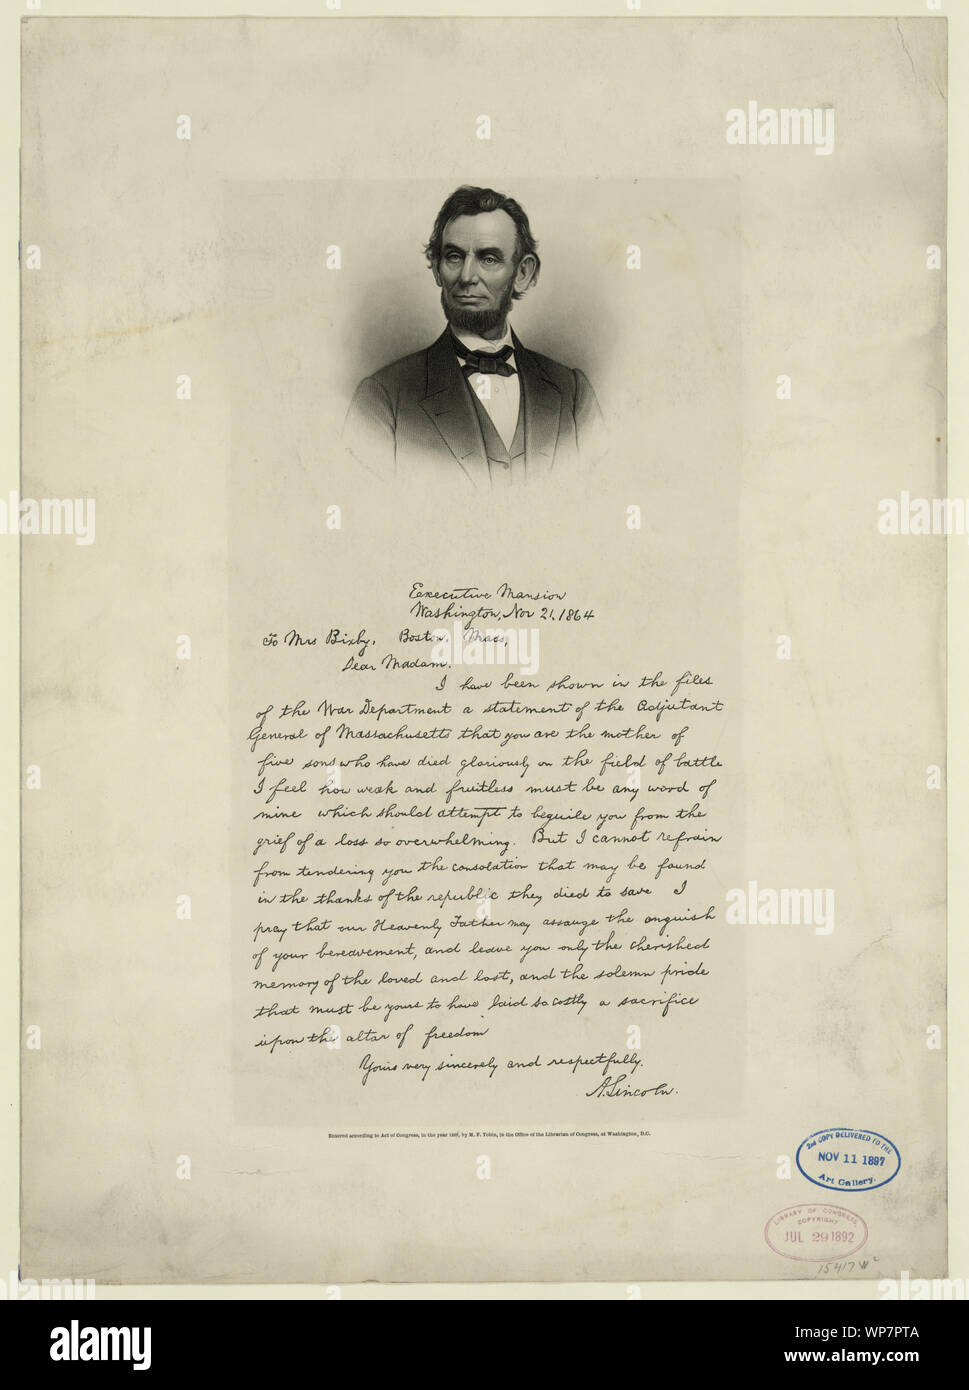 Executive Mansion
Washington, Nov 21, 1864
To Mrs Bixby, Boston, Mass,
Dear Madam.
I have been shown in the files
of the War Department a statement of the Adjutant
General of Massachusetts that you are the mother of
five sons who have died gloriously on the field of battle
I feel how weak and fruitless must be any word of
mine which should attempt to beguile you from the
grief of a loss so overwhelming. But I cannot refrain
from tendering you the consolation that may be found
in the thanks of the republic they died to save I
pray that our Heavenly Father may assauge the anguish
of your bereavement, and leave you only the cherished
memory of the loved and lost, and the solemn pride
that must be yours to have laid so costly a sacrifice
upon the altar of freedom
Yours very sincerely and respectfully.
A. Lincoln.
Entered according to Act of Congress, in the year by M. F. Tobin, in the Office of the Librarian of Congress, at Washington, D.C.
2nd COPY DELIVERED TO THE
NOV 11 1897
Art Gallery.
LIBRARY OF CONGRESS,
COPYRIGHT
JUL 29 1892
15417 W²
alamy
alamy
alamy
alamy
alamy
alamy
alamy
alamy
a
a
a
a
a
a
a
a
a
alamy
Image ID: WP7PTA
www.alamy.com